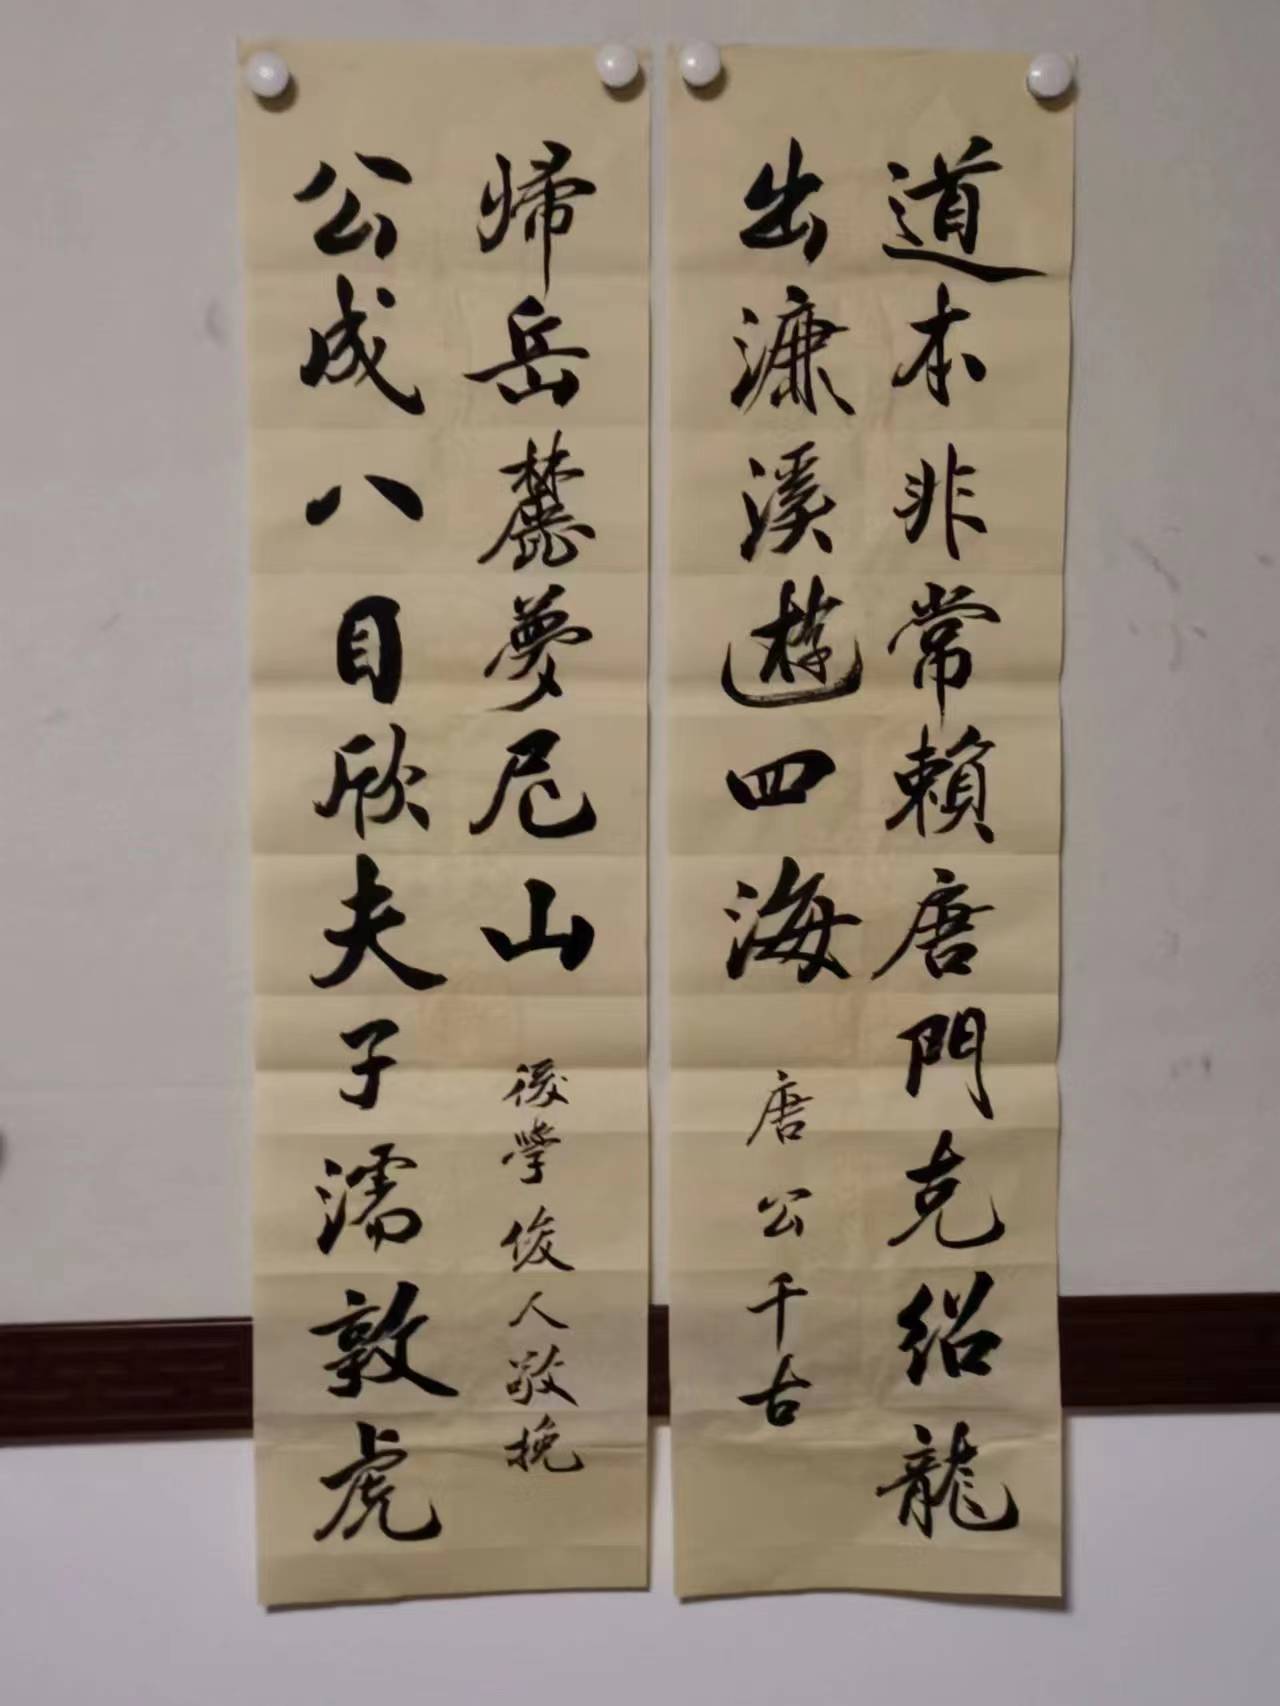 道本非常賴唐門克绍龍
出濂溪遊四海
唐公千古
公成八目欣夫子濡敦虎
帰岳麓夢尼山
後學俊人敬挽